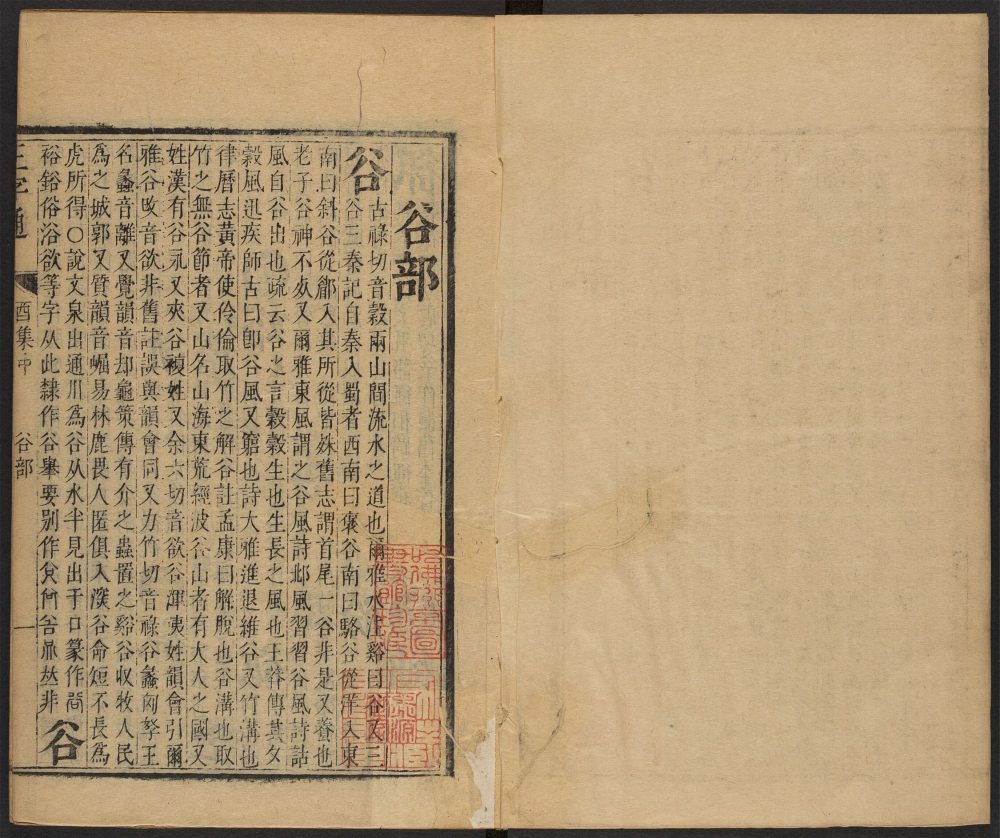 谷部
谷
古祿切音穀兩山間流水之道也爾雅水注谿曰谷又三
谷三秦記自秦入蜀者西南曰褒谷南曰駱谷從洋入東
南曰斜谷從郿入其所從皆殊舊志謂首尾一谷非是又養也
老子谷神不𣦸又爾雅東風謂之谷風詩邶風習習谷風詩詁
風自谷出也疏云谷之言穀穀生也生長之風也王莽傳其夕
穀風迅疾師古曰卽谷風又窮也詩大雅進退維谷又竹溝也
律曆志黃帝使伶倫取竹之解谷註孟康曰解脫也谷溝也取
竹之無谷節者又山名山海東荒經波谷山者有大人之國又
姓漢有谷永又夾谷複姓又余六切音欲谷渾夷姓韻會引爾
雅谷㕛音欲非舊註誤與韻會同又力竹切音祿谷蠡匈孥王
名蠡音離又覺韻音却龜策傳有介之蟲置之谿谷收牧人民
爲之城郭又質韻音崛易林鹿畏人匿俱入溪谷命短不長爲
虎所得〇說文泉出通川爲谷从水半見出于口篆作𧮫
裕鋊俗浴欲等字从此隸作谷舉要別作㕣
非
谷
正字通
酉集中
谷部
一